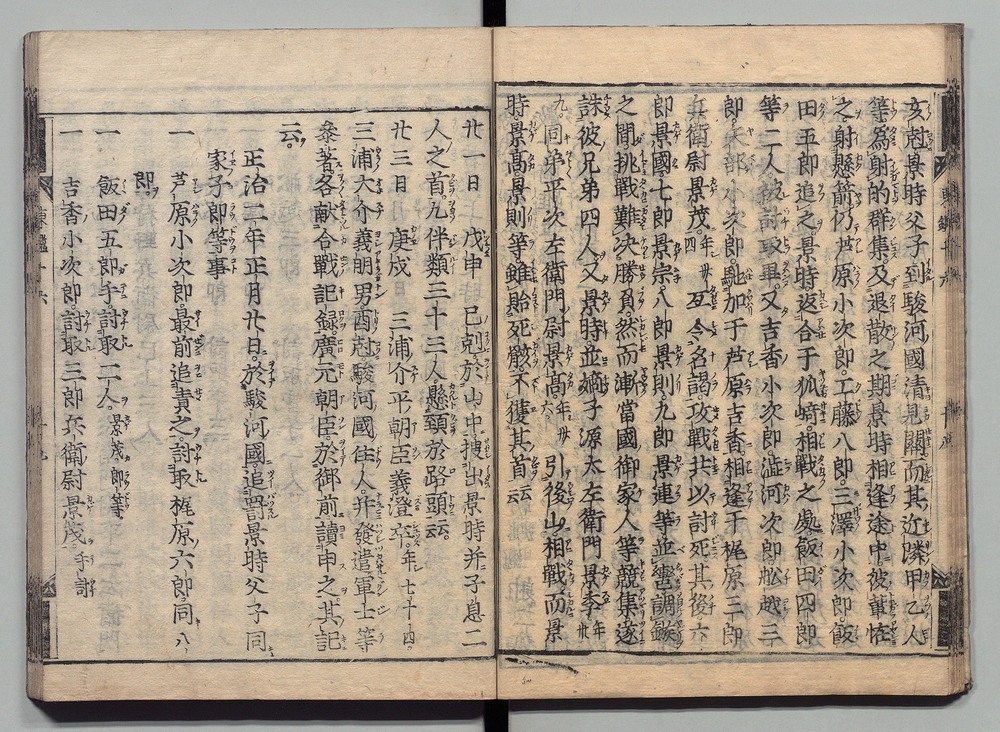 亥剋景時父子到駿河國清見關而其近隣甲乙人
等爲射的群集及退散之期景時相逢途中彼輩恠
之射懸箭仍芦原小次郎工藤八郎三澤小次郎飯
田五郎追之景時返合于狐﨑相戰之處飯田四郎
等二人被討取畢又吉香小次郎澁河次郎舩越三
郎矢部小次郎馳加于芦原吉香相逢于梶原三郎
兵衛尉景茂年卅四互令名謁攻戰共以討死其後六
郎景國七郎景宗八郎景則九郎景連等並轡調鏃
之間挑戰難決勝負然而漸當國御家人等競集遂
誅彼兄弟四人又景時並嫡子源太左衛門景季年卅
九同弟平次左衛門尉景髙年卅六引後山相戰而景
時景髙景則等雖貽死骸不獲其首云云
廿一日戊申巳剋於山中捜出景時并子息二
人之首凡伴類三十三人懸頸於路頭云云
廿三日庚戌三浦介平朝臣義澄卒年七十四
三浦大介義明男酉剋駿河國住人并發遣軍士等
參著各獻合戰記録廣元朝臣於御前讀申之其記
云
正治二年正月廿日於駿河國追罸景時父子同
家子郎等事
一 芦原小次郎最前追責之討取梶原六郎同八
郎
一 飯田五郎手討取二人景茂郎等
一 吉香小次郎討取三郎兵衛尉景茂手討